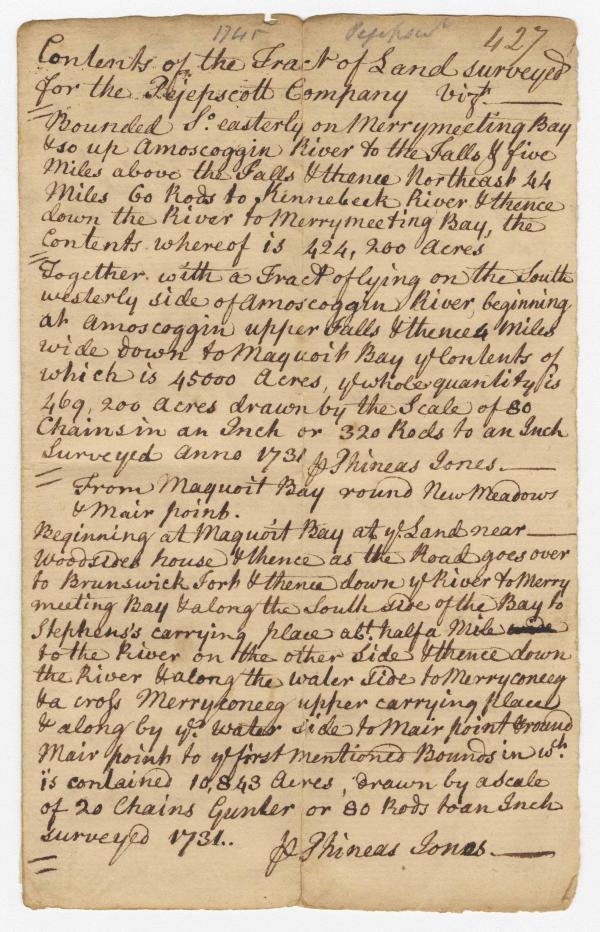 1745 Pejepsct 427
Contents of the Tract of Land surveyed
for the Pejepscott Company vizt.
Bounded So. easterly on Merrymeeting Bay
& so up Amoscoggin River to the Falls & five
Miles above the Falls & thence Northeast 44
Miles 60 Rods to Kinnebeck River & thence
down the River to Merrymeeting Bay, the
Contents whereof is 424,200 Acres
Together with a Tract of lying on the South
westerly side of Amoscoggin River, beginning
at Amoscoggin upper Falls & thence 4 Miles
wide down to Maquoit Bay ye Contents of
which is 45000 Acres, ye whole quantity is
469,200 Acres drawn by the Scale of 80
Chains in an Inch or 320 Rods to an Inch
Surveyed Anno 1731 ⅌ Phineas Jones.
From Maquoit Bay round New Meadows
& Mair point.
Beginning at Maquoit Bay at ye Land near
Woodsides house & thence as the Road goes over
to Brunswick Fort & thence down ye River to Merry
meeting Bay & along the South side of the Bay to
Stephens's carrying place abt. half a Mile
to the River on the other side & thence down
the River & along the water side to Merryconeeg
& a cross Merryconeeg upper carrying place
& along by ye water side to Mair point & round
Mair point to ye first mentioned Bounds in wch.
is contained 10,843 Acres, drawn by a scale
of 20 Chains Gunter or 80 Rods to an Inch
surveyed 1731..
⅌ Phineas Jones.